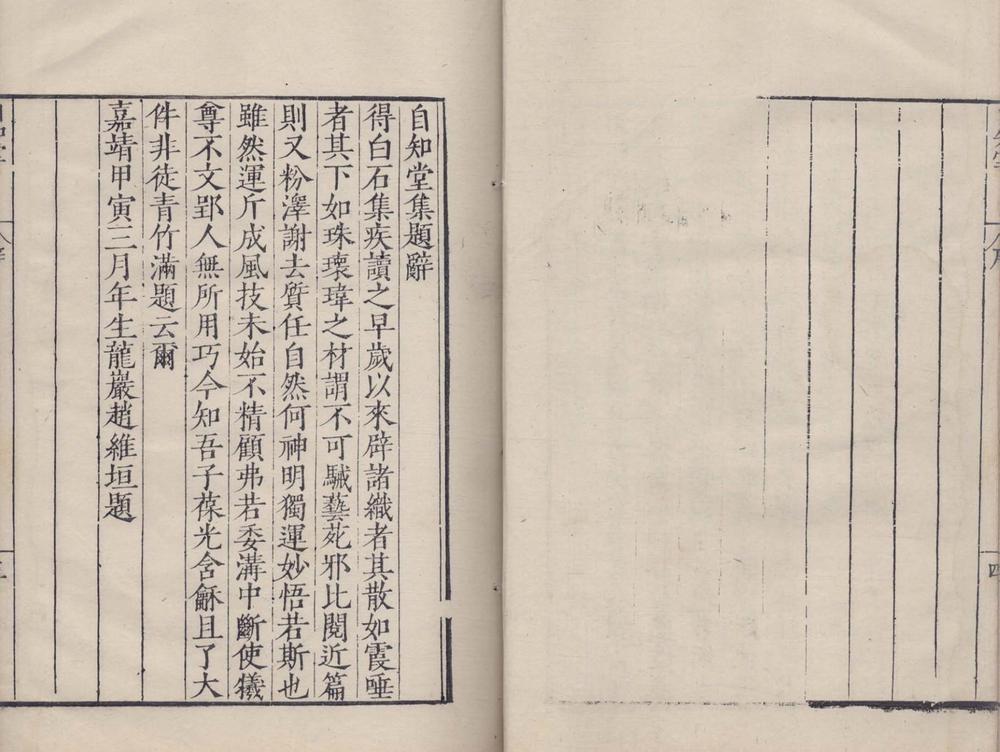 四
自知堂集題辭
得白石集疾讀之早歲以來辟諸織者其散如霞唾
者其下如珠瓌瑋之材謂不可駴藝苑邪比閱近篇
則又粉澤謝去質任自然何神明獨運妙悟若斯也
雖然運斤成風技未始不精顧弗若委溝中斷使犧
尊不文郢人無所用巧今知吾子葆光含龢且了大
件非徒青竹滿題云爾
嘉靖甲寅三月年生龍巖趙維垣題